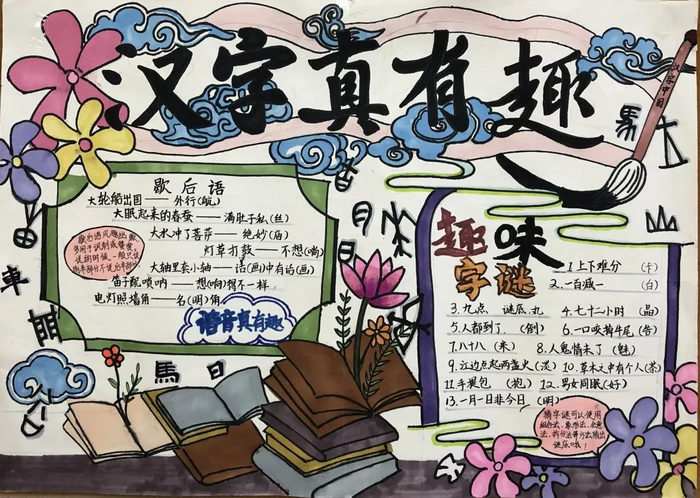 汉字真有趣
歇后语
大轮船出国——外行(航)
大眼起来的春蚕——满肚子私(丝)
大水冲了菩萨——绝妙(庙)
灯草打鼓——不想(响)
大轴里套小轴——话(画)中有话(画)
笛子配唢呐——想(响)得不一样
电灯照墙角——名(明)角
谐音真有趣
趣味
字谜
1.上下难分 (卡)
2.一百减一 (白)
3.九点 谜底:丸
4.七十二小时 (晶)
5.人都到了. (倒)
6.一口咬掉牛尾.(告)
7.八十八 (米)
8.人鬼情未了 (魅)
9.江边点起两盏火(淡)
10.草木之中有个人(茶)
11.手提包 (抱)
12.男女同眠(好)
13.一月一日非今日.(明)
猜字谜可以使用
車
門
馬
日
日
月
山